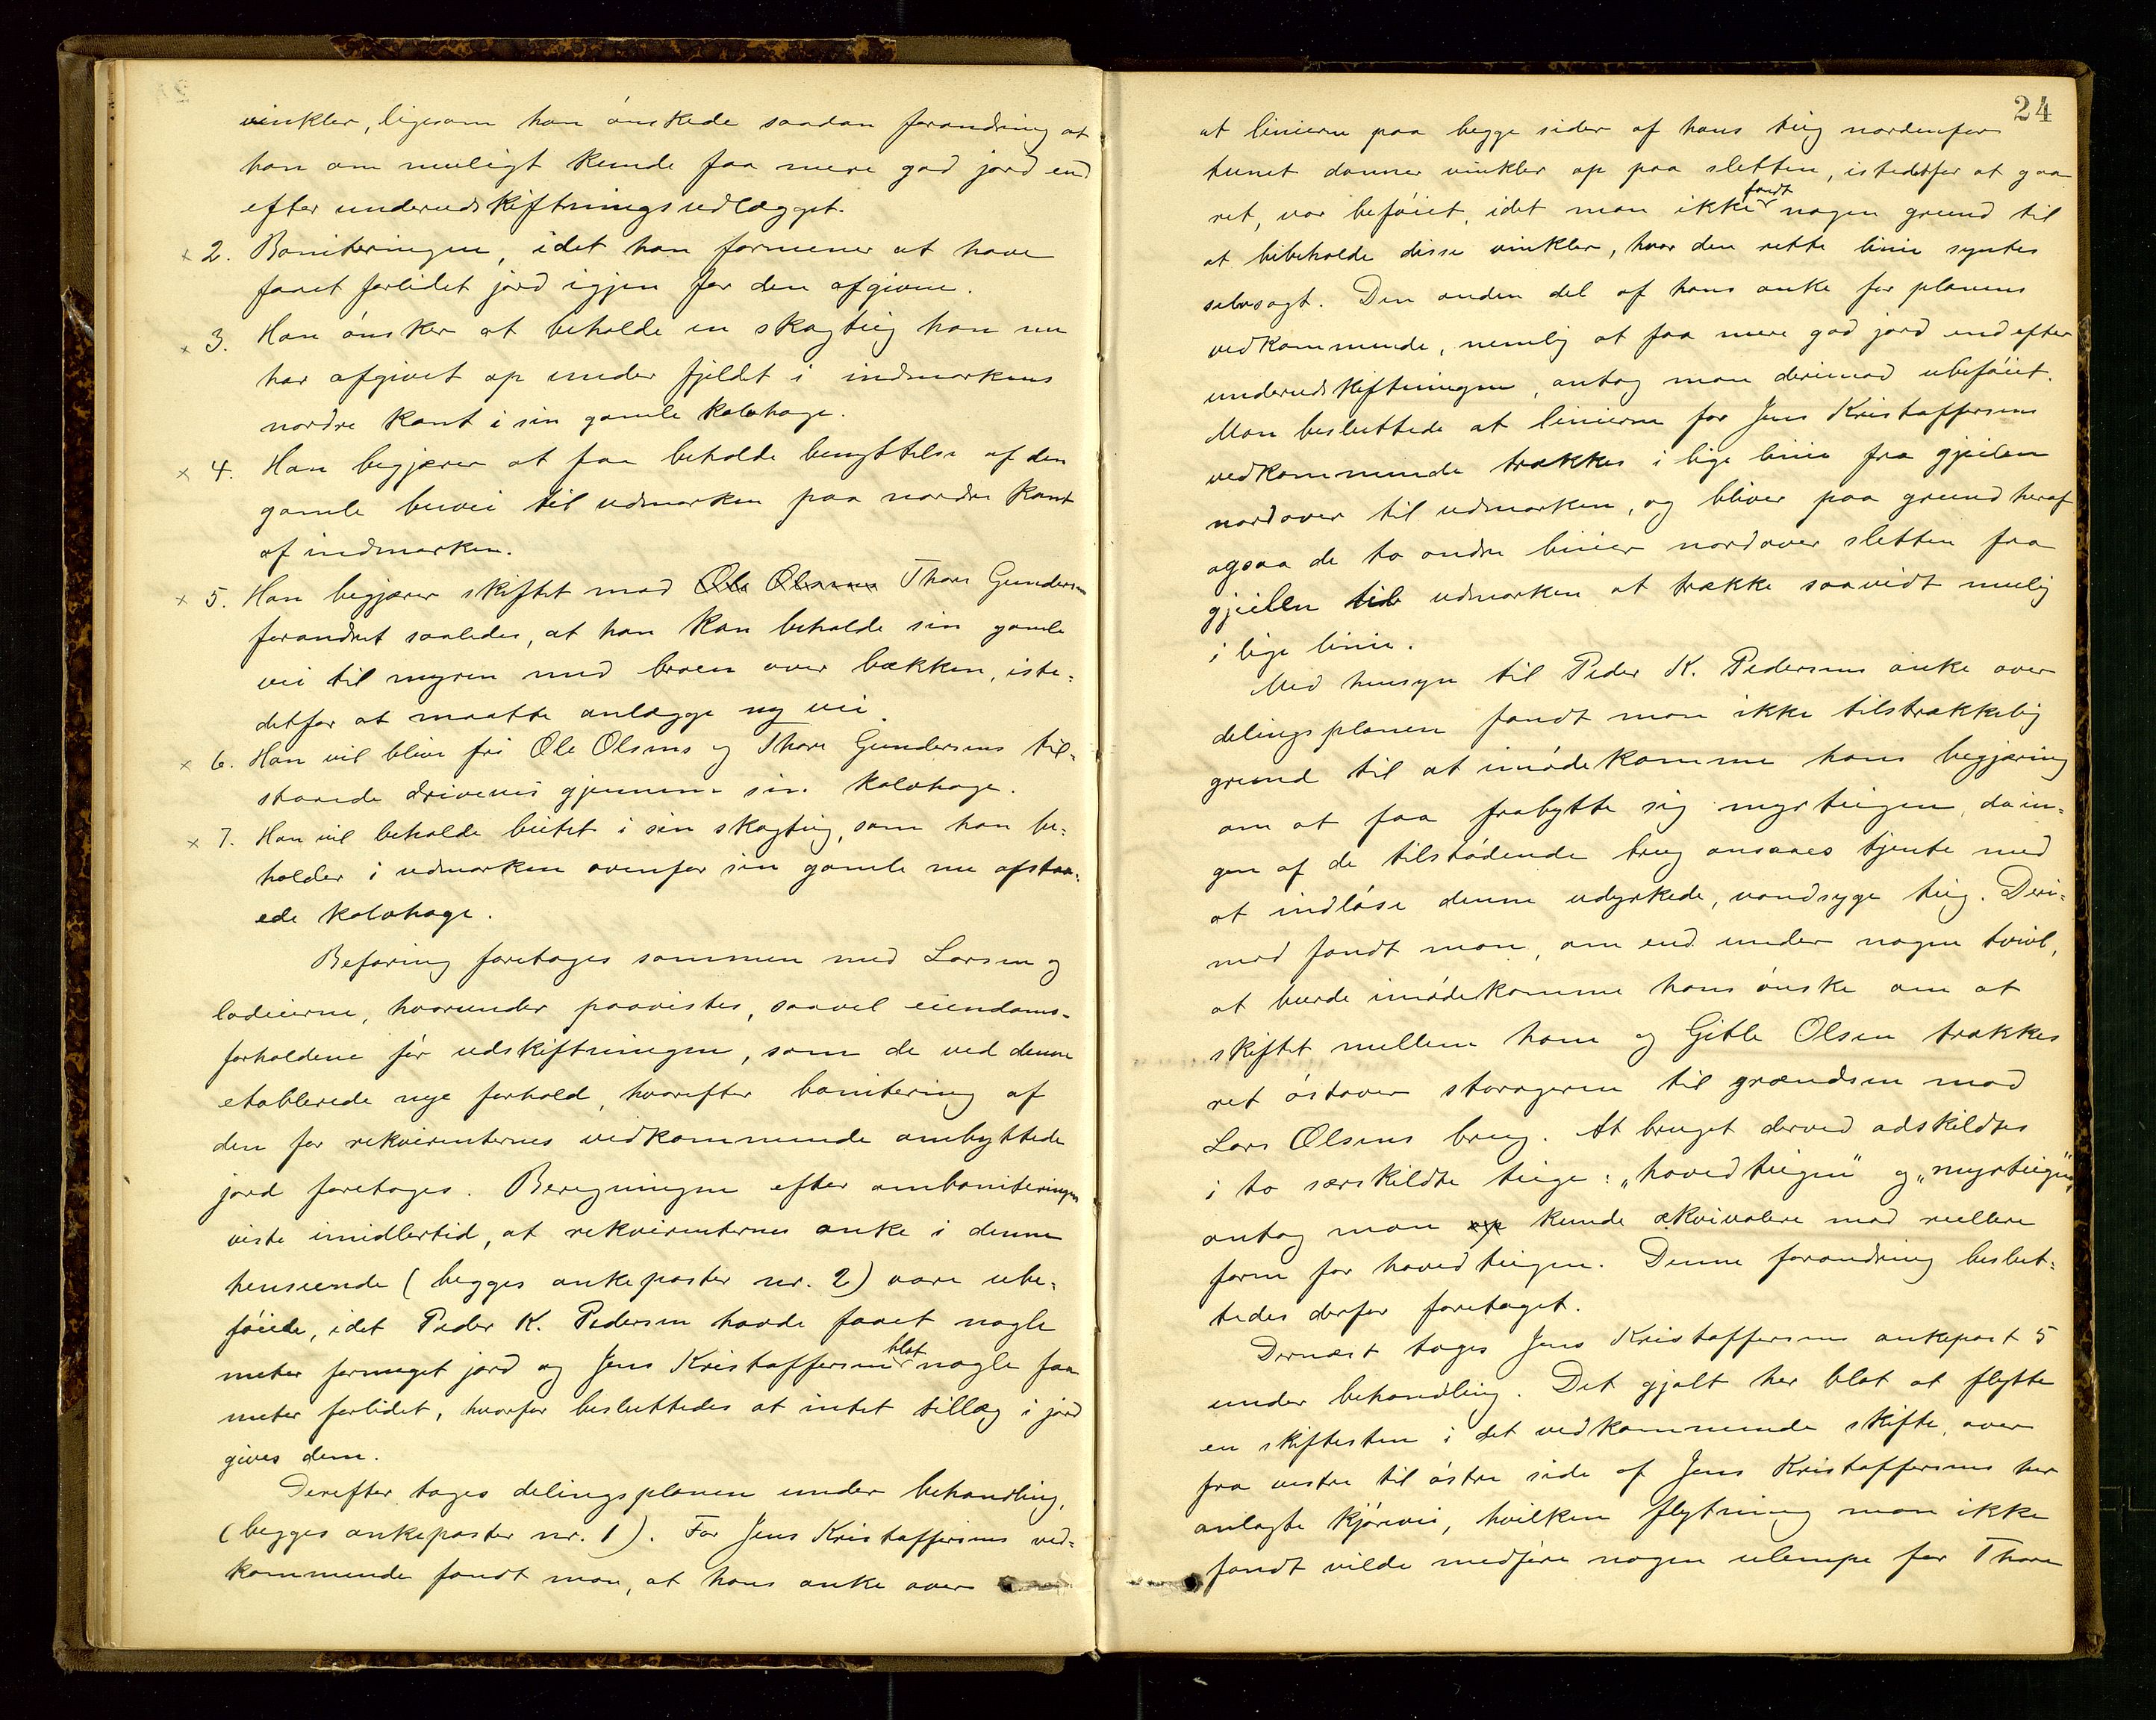 vinkler, ligesom han ønskede saadan forandring at
han om muligt kunde faa mere god jord end
efter underudskiftningsudlægget.
x 2. Boniteringen, idet han formener at have
faaet forlidet jord igjen for den afgivne.
x 3. Han ønsker at beholde en skogteig han nu
har afgivet op under fjeldet i indmarkens
nordre kant i sin gamle kalvhage.
x 4. Han begjærer at faa beholde benyttelse af den
gamle buvei til udmarken paa nordre kant
af indmarken.
x 5. Han begjærer skiftet mod Ole Olsens Thore Gundersen
forandret saaledes, at han kan beholde sin gamle
vei til myren med broen over bækken, iste-
detfor at maatte anlægge ny vei.
x 6. Han vil blive fri Ole Olsens og Thore Gundersens til-
staaede drivevei gjennem sin kalvhage.
x 7. Han vil beholde beitet i sin skogteig, som han be-
holder i udmarken ovenfor sin gamle nu afstaa-
ede kalvhage.
Befaring foretoges sammen med Larsen og
lodeierne, hvorunder paavistes, saavel eiendoms-
forholdene før udskiftningen, som de ved denne
etablerede nye forhold, hvorefter bonitering af
den for rekvirenternes vedkommende ombyttede
jord foretoges. Beregningen efter omboniteringen
viste imidlertid, at rekvirenternes anke i denne
henseende (begges ankeposter nr. 2) vare ube-
føiede, idet Peder K. Pedersen havde faaet nogle
meter formeget jord og Jens Kristoffersen blot nogle faa
meter forlidet, hvorfor besluttedes at intet tillæg i jord
gives dem.
Derefter toges delingsplanen under behandling,
(begges ankeposter nr. 1). For Jens Kristoffersens ved-
kommende fandt man, at hans anke over
24
at linierne paa begge sider af hans teig nordenfor
tunet danner vinkler op paa sletten, istedetfor at gaa
ret, var beføiet, idet man ikke fandt nogen grund til
at bibeholde disse vinkler, hvor den rette linie syntes
selvsagt. Den anden del af hans anke for planens
vedkommende, nemlig at faa mere god jord end efter
underudskiftningen, antog man derimod ubeføiet.
Man besluttede at linierne for Jens Kristoffersens
vedkommende trækkes i lige linie fra gjeilen
nordover til udmarken, og bliver paa grund heraf
ogsaa de to andre linier nordover sletten fra
gjeilen til udmarken at trække saavidt mulig
i lige linie.
Med hensyn til Peder K. Pedersens anke over
delingsplanen fandt man ikke tilstrækkelig
grund til at imødekomme hans begjæring
om at faa frabytte sig myrteigen, da in-
gen af de tilstødende brug ansaaes tjente med
at indløse denne udyrkede, vandsyge teig. Deri-
mod fandt man, om end under nogen tvivl,
at burde imødekomme hans ønske om at
skiftet mellem ham og Gitle Olsen trækkes
ret østover storageren til grændsen mod
Lars Olsens brug. At bruget derved adskildtes
i to særskildte teige: „hovedteigen" og „myrteigen",
antog man op kunde ækvivalere mod reellere
form for hovedteigen. Denne forandring beslut-
tedes derfor foretaget.
Dernæst toges Jens Kristoffersens ankepost 5
under behandling. Det gjalt her blot at flytte
en skiftesten i det vedkommende skifte, over
fra vestre til østre side af Jens Kristoffersens her
anlagte kjørevei, hvilken flytning man ikke
fandt vilde medføre nogen ulempe for Thore